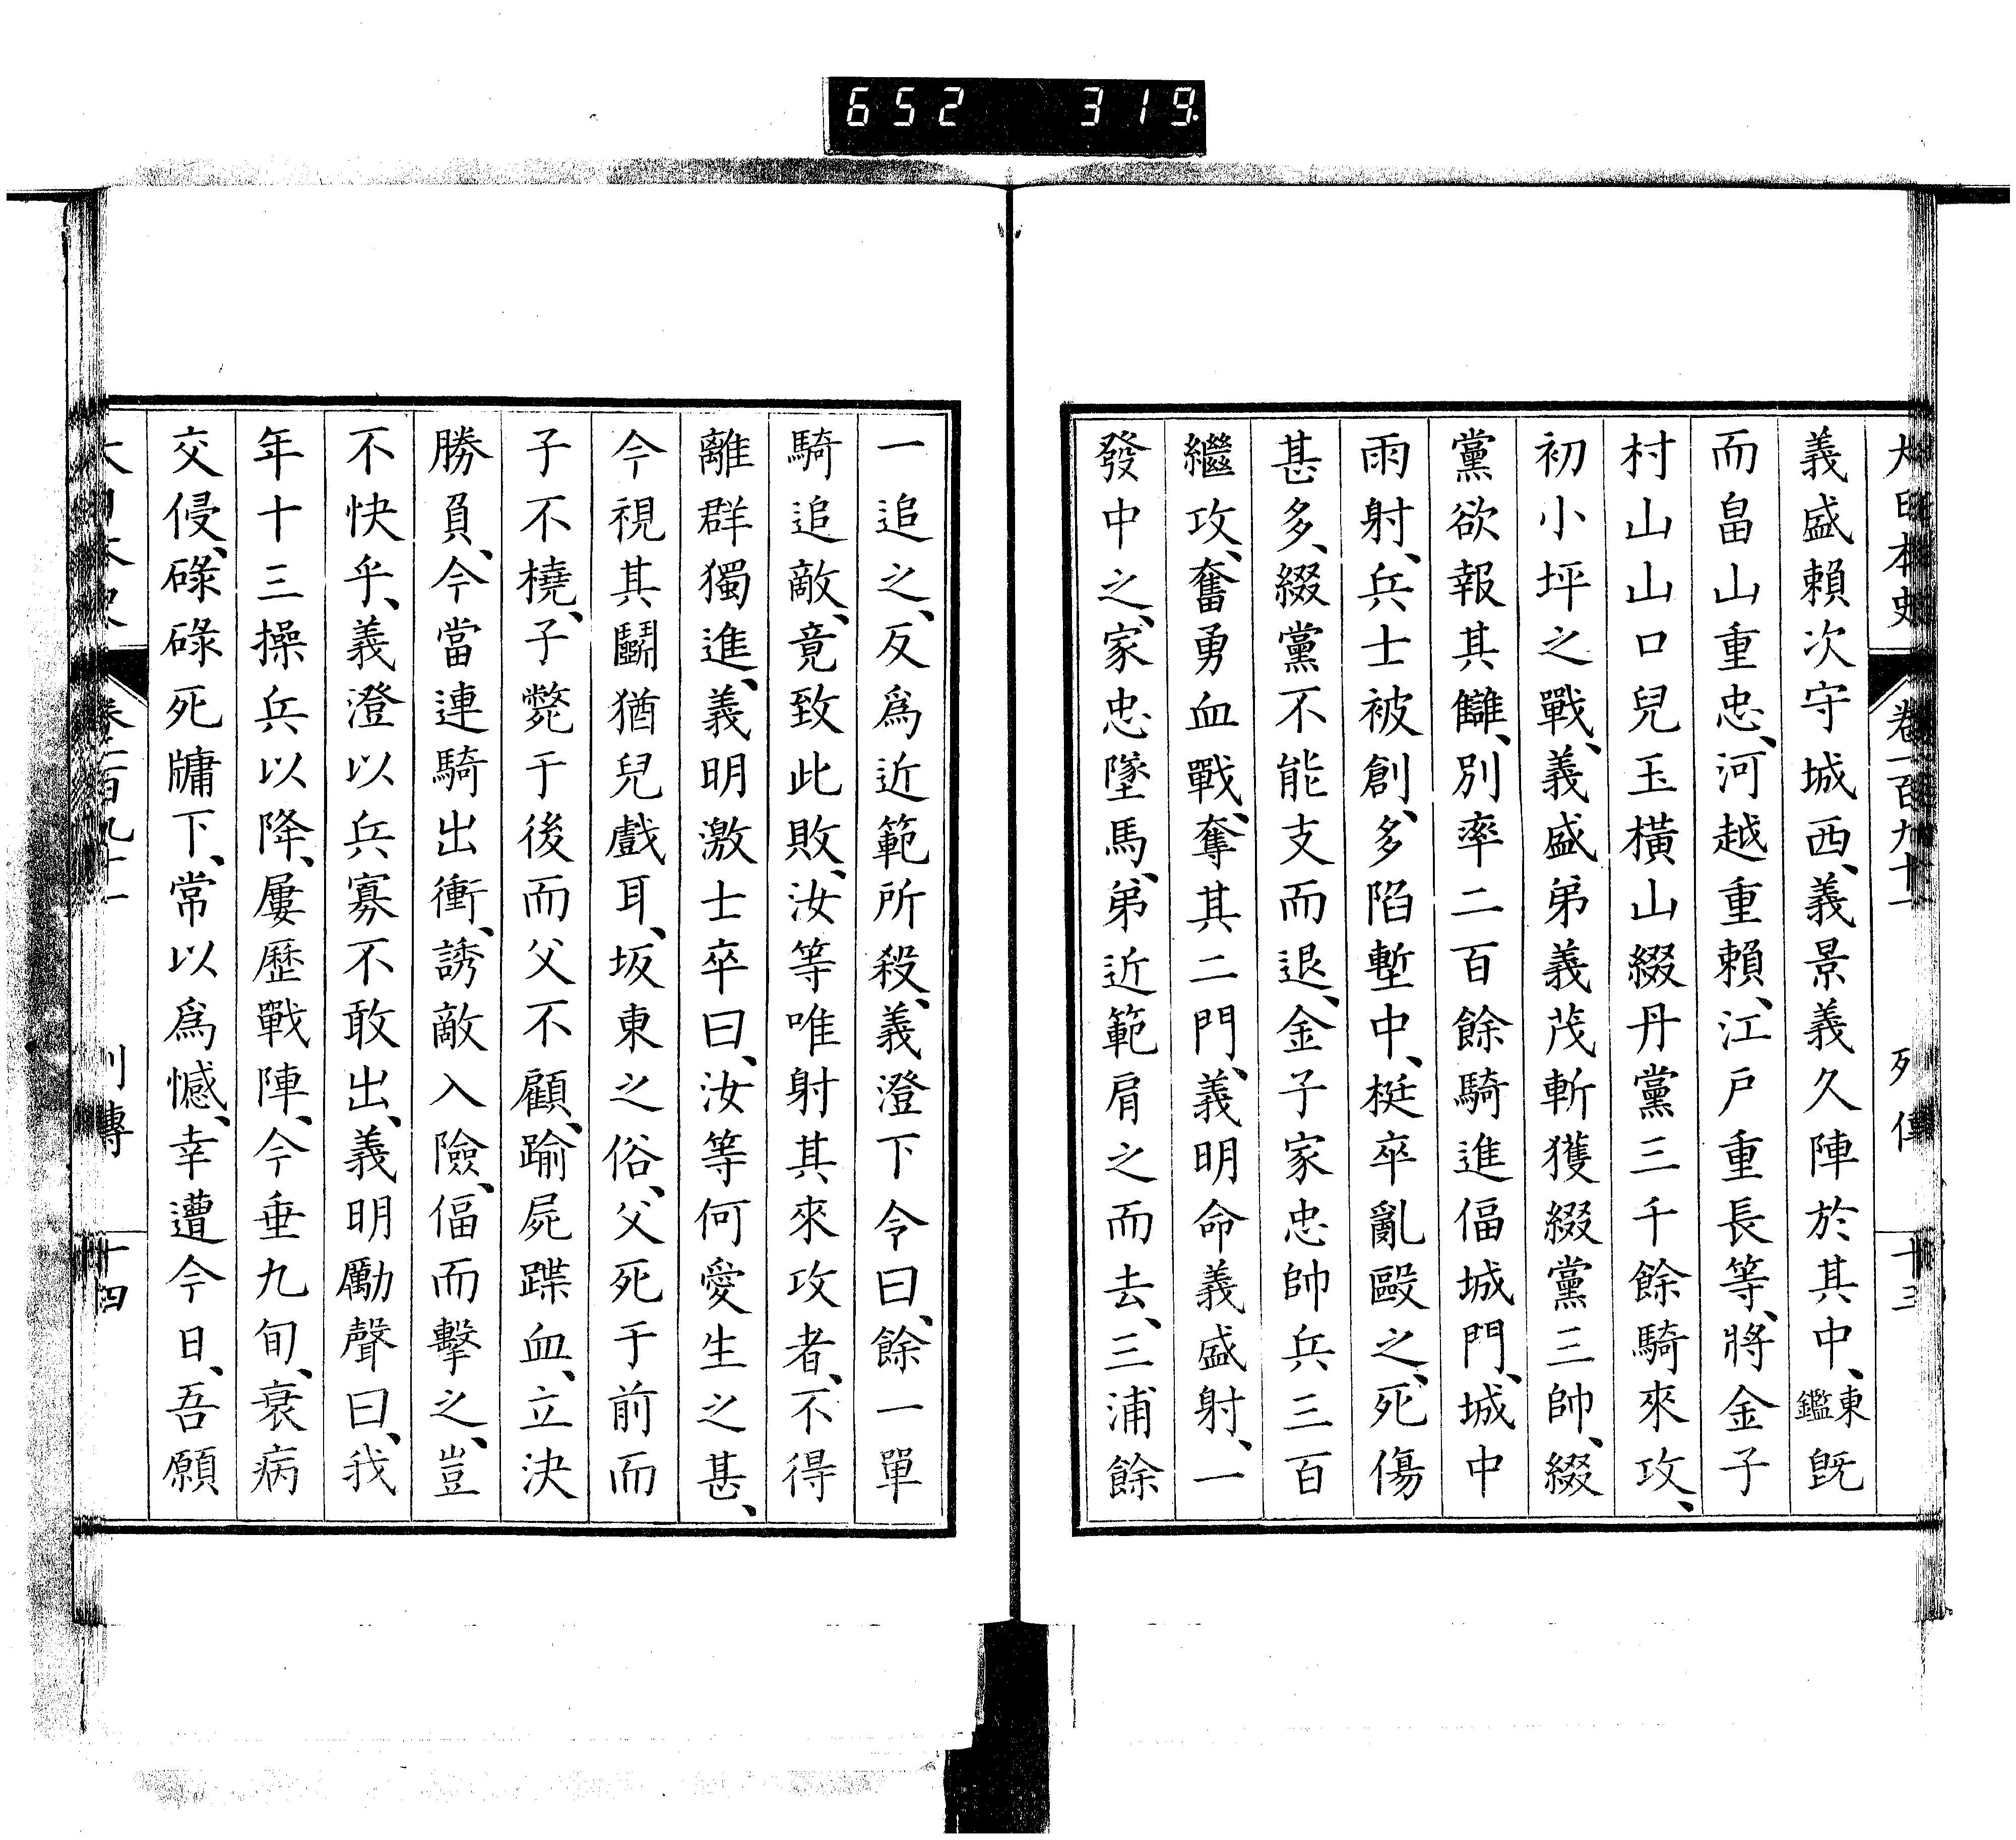 652 319
大日本史 卷一百九十一 列傳 十三
義盛賴次守城西、義景義久陣於其中、東鑑既
而畠山重忠、河越重賴、江戸重長等、將金子
村山山口兒玉橫山綴丹黨三千餘騎來攻、
初小坪之戰、義盛弟義茂斬獲綴黨三帥、綴
黨欲報其讎、別率二百餘騎進偪城門、城中
雨射、兵士被創、多陷塹中、梃卒亂毆之、死傷
甚多、綴黨不能支而退、金子家忠帥兵三百
繼攻、奮勇血戰、奪其二門、義明命義盛射、一
發中之、家忠墜馬、弟近範肩之而去、三浦餘
一追之、反爲近範所殺、義澄下令曰、餘一單
騎追敵、竟致此敗、汝等唯射其來攻者、不得
離群獨進、義明激士卒曰、汝等何愛生之甚、
今視其鬭猶兒戲耳、坂東之俗、父死于前而
子不橈、子斃于後而父不顧、踰屍蹀血、立決
勝負、今當連騎出衝、誘敵入險、偪而擊之、豈
不快乎、義澄以兵寡不敢出、義明勵聲曰、我
年十三操兵以降、屢歷戰陣、今垂九旬、衰病
交侵、碌碌死牖下、常以爲憾、幸遭今日、吾願
大日本史 卷一百九十一 列傳 十四